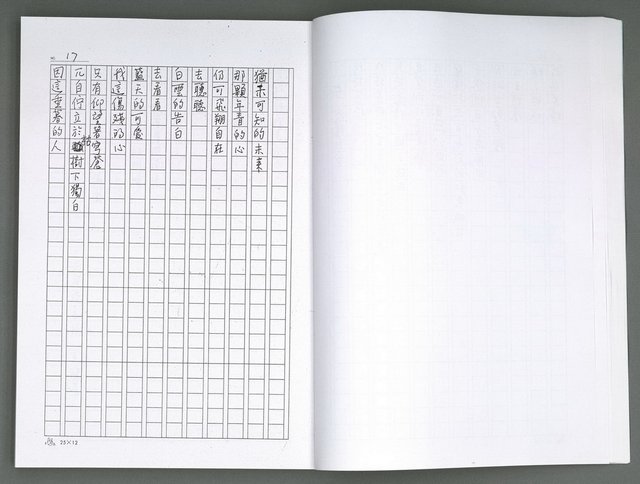 17
猶未可知的未來
那顆年青的心
仍可飛翔自在
去聽聽
白雲的告白
去看看
藍天的可愛
我這傷殘的心
只有仰望著穹蒼
兀自佇立於枯樹下獨白
因這的人
25×12